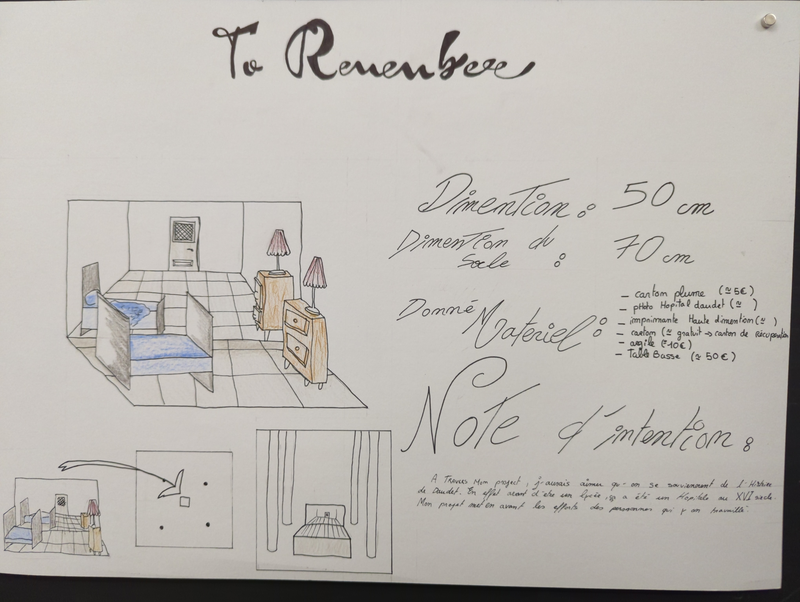 To Remember
Dimention : 50 cm
Dimention du
Socle : 70 cm
Donné Materiel :
- carton plume (≃ 5€)
- pHoto Hopital daudet (≃ )
- imprimante Haute dimention (≃ )
- carton (≃ gratuit → carton de Récupération
- argile (≃10€)
- Table Basse (≃ 50€)
Note d'intention :
A Travers Mon project, j'aurais aimer qu'on se souviennent de l'Histoire
de Daudet. En effet avant d'etre un lycée, il a été un Hôpitale au XVI siecle.
Mon projet met en avant les efforts des personnes qui y on travaillé.